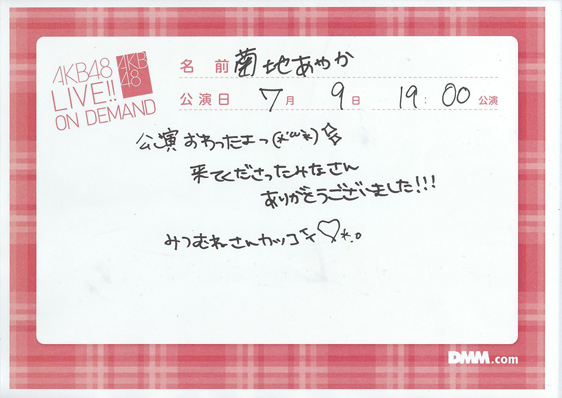 AKB48
LIVE!!
ON DEMAND
AKB
48
名 前 菊地あやか
公演日 7月 9日 19:00 公演
公演おわったよっ(*´ω`*)☆
来てくださったみなさん
ありがとうございました!!!
みつむねさんカッコイイ♡*.。
DMM.com